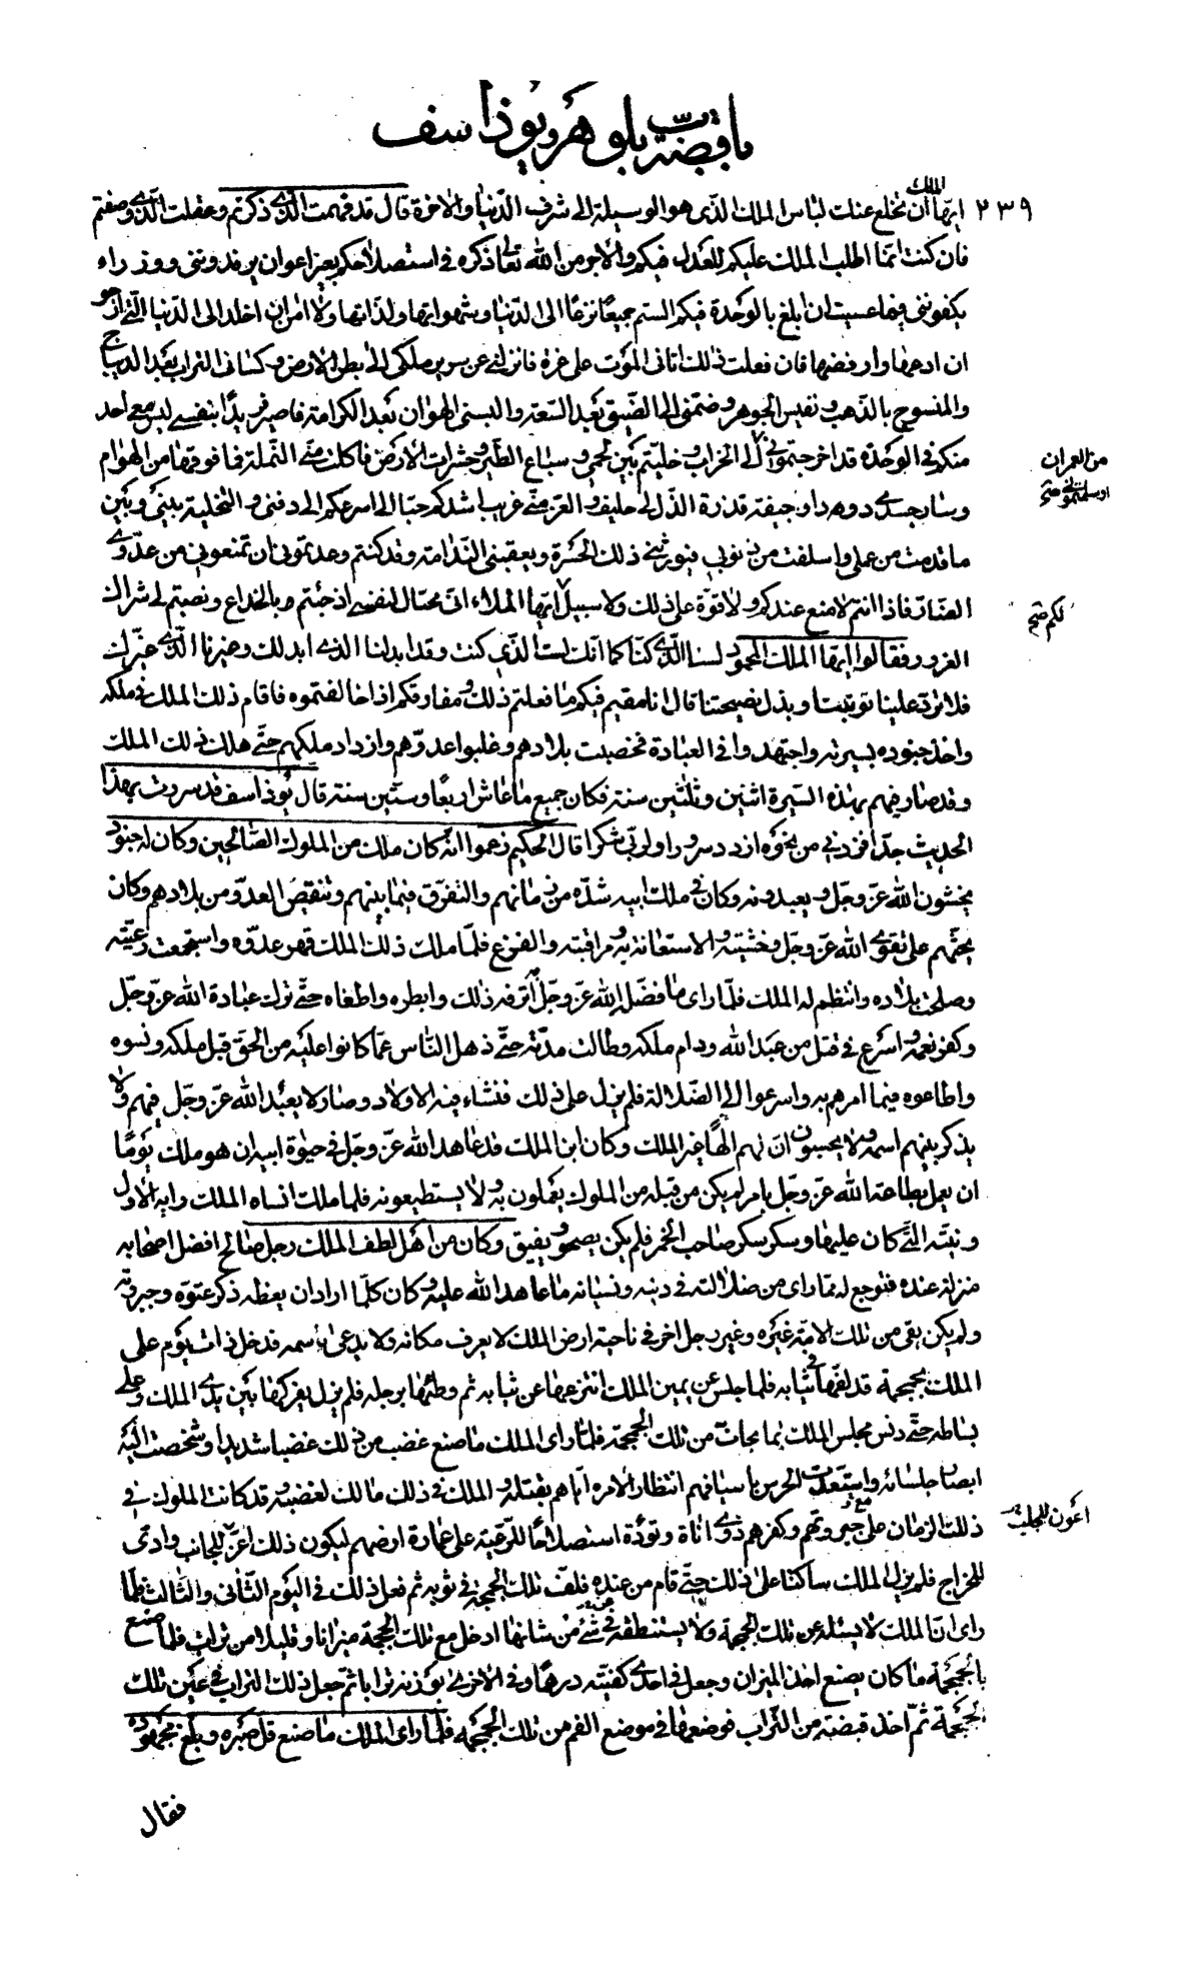 باقصّة بلوهر ويوذاسف
٢٣٩ ايّها الملك ان تخلع عنك لباس الملك الذى هو الوسيلة الى شرف الدّنيا والاخرة قال قد فهمت الّذى ذكرتم وعقلت الّذى وصفتم
فان كنت انما اطلب الملك عليكم للعدل فيكم والاجر من الله تعالى ذكره فى استصلاحكم بغير اعوان يرفدوننى ووزراء
يكفوننى فما عسيت ان ابلغ بالوحدة فيكم الستم جميعًا نزعًا الى الدّنيا وشهواتها ولذّاتها ولا امن ان اخلد الى الدّنيا الّتى ارجو
ان ادعها وارفضها فان فعلت ذلك اتانى الموت على غرة فانزلنى عن سرير ملكى الى بطن الارض وكسانى التراب بعد الديباج
والمنسوج بالذّهب ونفيس الجوهر وضمّنى الى الضّيق بعد السّعة والبسنى الهوان بعد الكرامة فاصير فريدًا بنفسى ليس معى احد
منكم فى الوحدة قد اخرجتمونى الى الخراب وخليتم بين لحمى وسباع الطّير وحشرات الارض فاكلت منّى النّملة فما فوقها من الهوام
وصار جسدى دودا وجيفة قذرة الذّل لى حليف والعز منّى غريب اشدكم حبا الى اسرعكم الى دفنى والتخلية بينى وبين
ما قدمت من عملى واسلفت من ذنوبى فيورثنى ذلك الحسرة ويعقبنى النّدامة وقد كنتم وعدتمونى ان تمنعونى من عدوّى
الضّار فاذا انتم لا منع عندكم ولا قوّة على ذلك ولا سبيل ايّها الملاء انى محتال لنفسى اذ جئتم بالخداع ونصبتم لى شراك
الغرور فقالوا ايّها الملك المحمود لسنا الّذى كنّا كما انك لست الّذى كنت وقد ابدلنا الذى ابدلك وغيرنا الّذى غيّرك
فلا تردّ علينا توبتنا وبذل نصيحتنا قال انا مقيم فيكم ما فعلتم ذلك ومفارقكم اذا خالفتموه فاقام ذلك الملك فى ملكه
واخذ جنوده بسيرته واجتهدوا فى العبادة فخصبت بلادهم وغلبوا عدوّهم وازداد ملكهم حتّى هلك ذلك الملك
وقد صار فيهم بهذه السّيرة اثنين وثلثين سنة فكان جميع ما عاش اربعًا وستّين سنة قال يوذاسف قد سررت بهذا
الحديث جدّا فزدنى من نحوه ازدد سرورا ولربّى شكرا قال الحكيم زعموا انّه كان ملك من الملوك الصّالحين وكان له جنود
يخشون الله عزّ وجلّ ويعبدونه وكان فى ملك ابيه شدّة من زمانهم والتفرّق فيما بينهم وتنقيص العدوّ من بلادهم وكان
يحثّهم على تقوى الله عزّ وجلّ وخشيته والاستعانة به ومراقبته والفزع فلمّا ملك ذلك الملك قهر عدوّه واستجمعت رعيّته
وصلحت بلاده وانتظم له الملك فلمّا راى ما فضّل الله عزّ وجلّ اترفه ذلك وابطره واطغاه حتّى ترك عبادة الله عزّ وجلّ
وكفر نعمه واسرع فى قتل من عبد الله ودام ملكه وطالت مدّته حتّى ذهل النّاس عمّا كانوا عليه من الحق قبل ملكه ونسوه
واطاعوه فيما امرهم به واسرعوا الى الضّلالة فلم يزل على ذلك فنشاء فيه الاولاد وصار لا يعبد الله عزّ وجلّ فيهم ولا
يذكر بينهم اسمه ولا يحسبون انّ لهم الهًا غير الملك وكان ابن الملك قد عاهد الله عزّ وجلّ فى حيوة ابيه ان هو ملك يومًا
ان يعمل بطاعة الله عزّ وجلّ بامر لم يكن من قبله من الملوك يعملون به ولا يستطيعونه فلما ملك انساه الملك رايه الاول
ونيّته الّتى كان عليها وسكر سكر صاحب الخمر فلم يكن يصحو ويفيق وكان من اهل لطف الملك رجل صالح افضل اصحابه
منزلة عنده فتوجع له ممّا راى من ضلالته فى دينه ونسيانه ما عاهد الله عليه وكان كلّما اراد ان يعظه ذكر عتوّه وجبروته
ولم يكن بقى من تلك الامّة غيره وغير رجل اخر فى ناحية ارض الملك لا يعرف مكانه ولا يدعى باسمه فدخل ذات يوم على
الملك بجمجمة قد لفّها فى ثيابه فلما جلس عن يمين الملك انتزعها عن ثيابه ثم وطئها برجله فلم يزل يفركها بين يدى الملك وعلى
بساطه حتّى دنس مجلس الملك بما تحاتّ من تلك الجمجمة فلمّا راى الملك ما صنع غضب من ذلك غضبا شديدا وشخصت اليه
ابصار جلسائه واستعدّت الحرس باسيافهم انتظارا لامره اياهم بقتله والملك فى ذلك مالك لغضبه وقد كانت الملوك فى
ذلك الزمان على جبروتهم وكفرهم ذوى اناة وتؤدة استصلاحًا للرّعيّة على عمارة ارضهم ليكون ذلك اعون للجلب وادّى
للخراج فلم يزل الملك ساكتا على ذلك حتّى قام من عنده فلفّ تلك الجمجمة فى ثوبه ثم فعل ذلك فى اليوم الثّانى والثّالث فلمّا
راى انّ الملك لا يسئله عن تلك الجمجمة ولا يستنطقه فى شىء من شانها ادخل مع تلك الجمجمة ميزانا وقليلا من تراب فلما صنع
بالجمجمة ما كان يصنع اخذ الميزان وجعل فى احدى كفّتيه درهمًا وفى الاخرى بوزنه ترابا ثمّ جعل ذلك التراب فى عين تلك
الجمجمة ثمّ اخذ قبضة من التّراب فوضعها فى موضع الفم من تلك الجمجمة فلمّا راى الملك ما صنع قل صبره وبلغ مجهوده
من العمران
واسلمتمونى صح
لكم صح
اعون للجلب
فقال